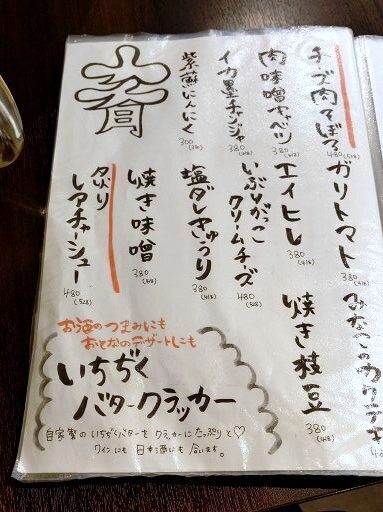 チーズ肉そぼろ
480(528)
肉味噌キャベツ
380(418)
イカ墨チャンジャ
380(418)
紫蘇にんにく
300(330)
ガリトマト
380(418)
エイヒレ
380(418)
いぶりがっこ
クリームチーズ
480(528)
塩ダレきゅうり
380(418)
焼き味噌
380(418)
炙り
レアチャーシュー
480(528)
焼き枝豆
380(418)
お酒のつまみにも
おとなのデザートにも
いちぢく
バタークラッカー
自家製のいちぢくバターをクラッカーにたっぷりと♡
ワインにも日本酒にも合います。